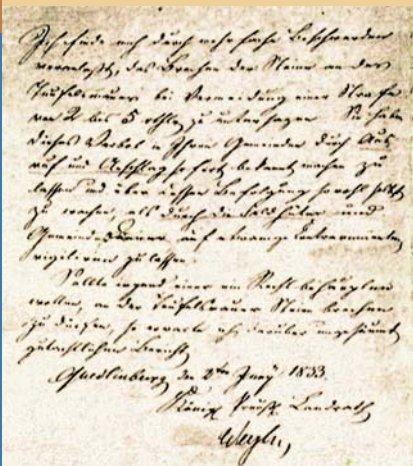 Ich finde mich durch mehrfache Beschwerden
veranlaßt, das Brechen der Steine an der
Teufelsmauer bei Vermeidung einer Strafe
von 2 bis 5 rthlr. zu untersagen. Sie haben
dieses Verbot in Ihren Gemeinden durch Aus
ruf und Anschlag sofort bekannt machen zu
lassen und über dessen Befolgung sowohl selbst
zu wachen, als durch die Feldhüter und
Gemeindediener auf etwanige Contravenienten
vigiliren zu lassen.
Sollte irgend einer ein Recht behaupten
wollen, an der Teufelsmauer Steine brechen
zu dürfen, so erwarte ich darüber ungesäumt
gutachtlichen Bericht
Quedlinburg, den 2ten 1833.
Königl Preuß. Landrath
Weyhe